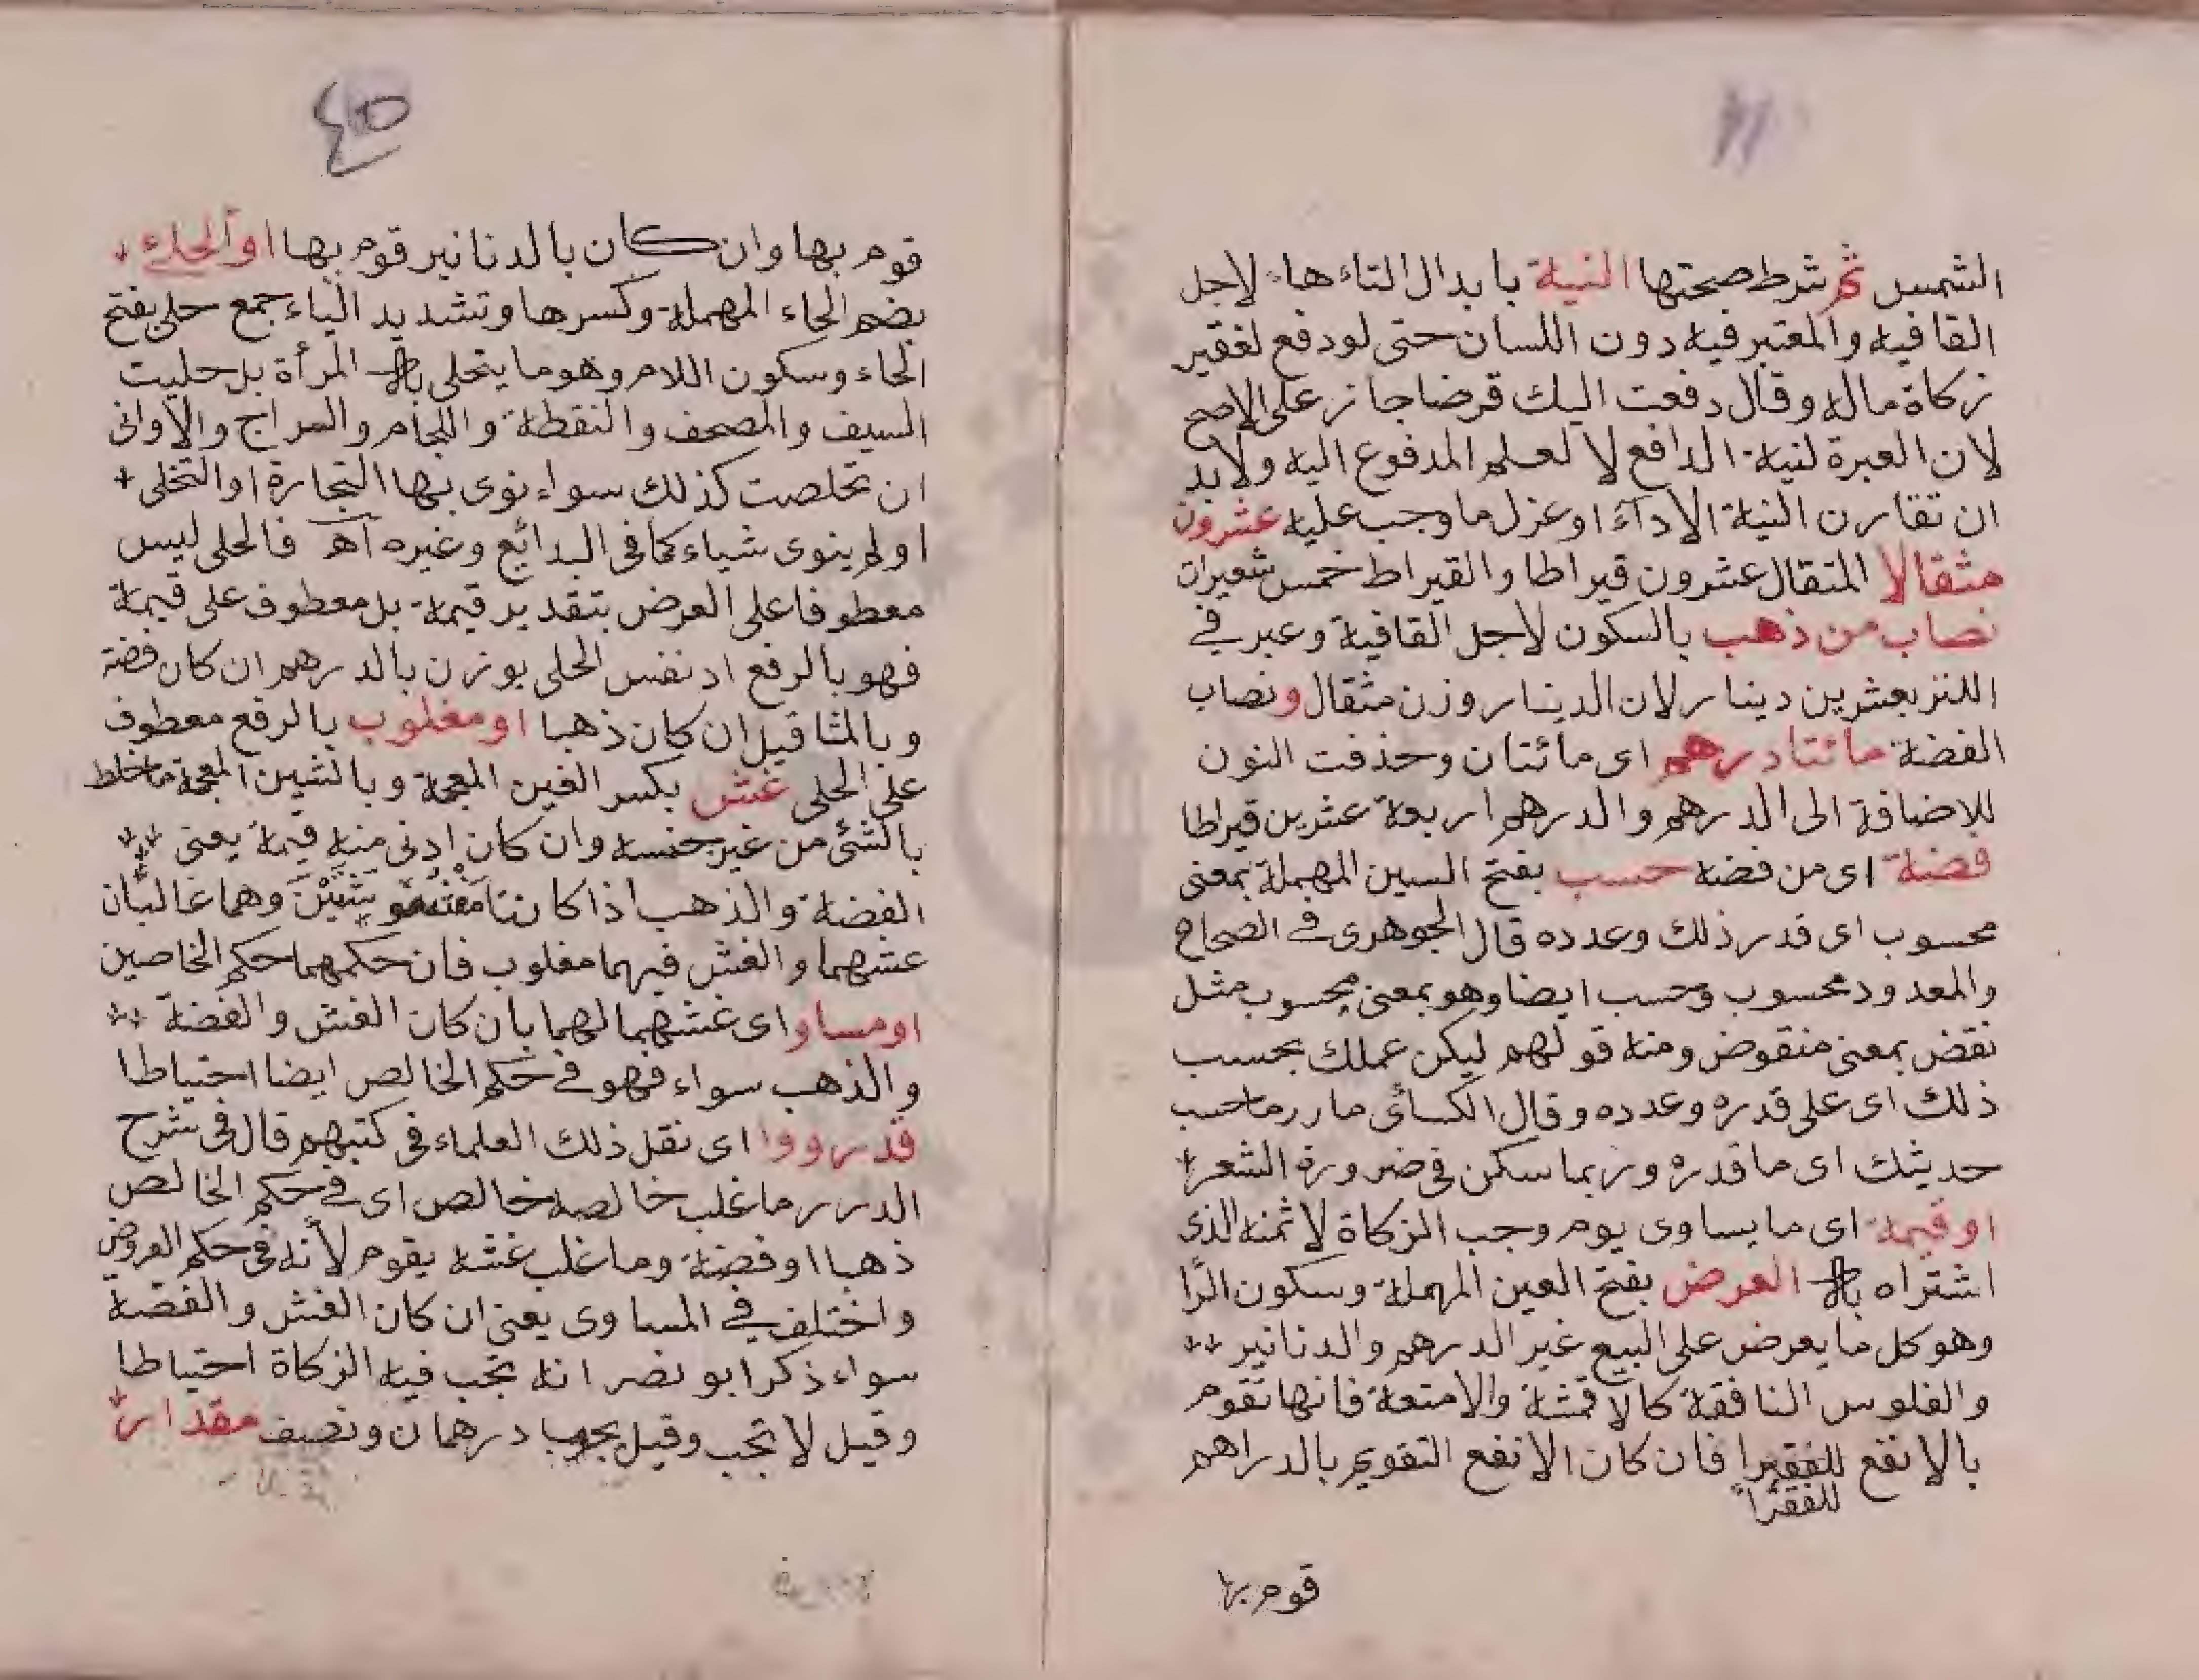 الشمس ثم شرط صحتها النية بابدال التاء هاء لاجل
القافيه والمعتبر فيه دون اللسان حتى لو دفع لفقير
زكاة ماله وقال دفعت اليك قرضا جاز على الاصح
لان العبرة لنية الدافع لا لعلم المدفوع اليه ولابد
ان تقارن النية الادآء او عزل ما وجب عليه عشرون
مثقالا المثقال عشرون قيراطا والقيراط خمس شعيرات
نصاب من ذهب بالسكون لأجل القافية وعبر في
الكنز بعشرين دينار لان الدينار وزن مثقال ونصاب
الفضة مائتا درهم اى مائتان وحذفت النون
للاضافة الى الدرهم والدرهم اربعة عشرين قيراطا
فضة اى من فضة حسب بفتح السين المهملة بمعنى
محسوب اى قدر ذلك وعدده قال الجوهرى في الصحاح
والمعدود محسوب وحسب ايضا وهو بمعنى محسوب مثل
نقض بمعنى منقوض ومنه قولهم ليكن عملك بحسب
ذلك اى على قدره وعدده وقال الكسائى ما ادرى ما حسب
حديثك اى ما قدره وربما سكن في ضرورة الشعر
او قيمة اى ما يساوى يوم وجب الزكاة لا ثمنه الذى
اشتراه به العرض بفتح العين المهملة وسكون الرا
وهو كل ما يعرض على البيع غير الدرهم والدنانير
والفلوس النافقة كالاقمشة والامتعة فانها تقوم
بالانفع للفقيرا فان كان الانفع التقويم بالدراهم
للفقرا
قوم بها
قوم بها وان كان بالدنانير قوم بها او الحلى
بضم الحاء المهملة وكسرها وتشديد الياء جمع حلى بفتح
الحاء وسكون اللام وهو ما يتحلى به المرأة بل حليت
السيف والمصحف والنقطة واللجام والسراج والاوانى
ان تخلصت كذلك سواء نوى بها التجارة او التحلى
او لم ينوى شياء كما فى البدائع وغيره آهـ فالحلى ليس
معطوفا على العرض بتقدير قيمة بل معطوف على قيمة
فهو بالرفع اذ نفس الحلى يوزن بالدرهم ان كان فضة
وبالمثاقيل ان كان ذهبا او مغلوب بالرفع معطوف
على الحلى غش بكسر الغين المعجمة وبالشين المعجمة ما خلط
بالشئ من غير جنسه وان كان ادنى منه قيمة يعنى
الفضة والذهب اذا كانتا وهما غالبان
عشهما والغش فيهما مغلوب فان حكمهما حكم الخاصين
او مساو اى غشهما لهما بان كان الغش والفضة
والذهب سواء فهو في حكم الخالص ايضا احتياطا
قد رووا اى نقل ذلك العلماء فى كتبهم قال فى شرح
الدرر ما غلب خالصه خالص اى في حكم الخالص
ذهبا او فضة وما غلب غشه يقوم لأنه فى حكم العروض
واختلف في المساوى يعنى ان كان الغش والفضة
سواء ذكر ابو نصر انه تجب فيه الزكاة احتياطا
وقيل لا تجب وقيل يجب درهمان ونصف مقدار